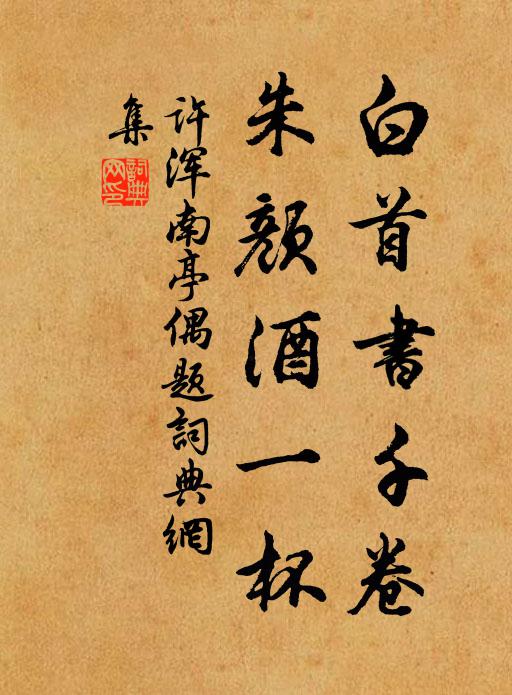 白首書千卷
朱顏酒一杯
许浑南亭偶題詞典網
集
詞典
网印